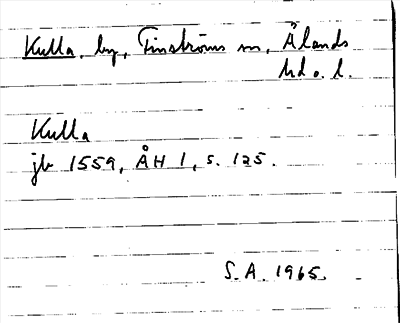 Kulla, by, Finströms sn, Ålands
hd o. l.
Kulla
jb 1559, ÅH 1, s. 125.
S.A. 1965.